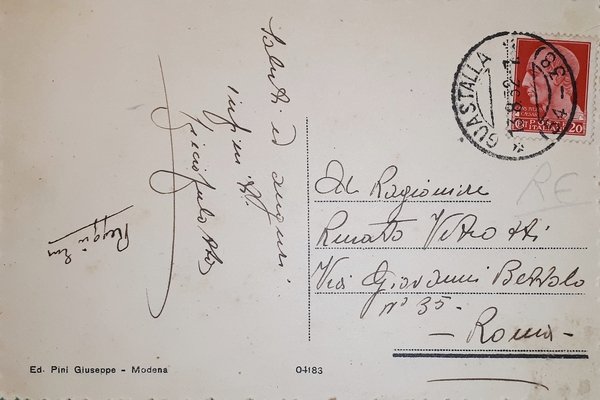 Saluti ed auguri
infiniti
Al Ragioniere
Renato Vitrotti
Via Giovanni Bettolo
n° 35 -
- Roma -
GUASTALLA
POSTE ITALIANE
20
RE
Ed. Pini Giuseppe - Modena
04183